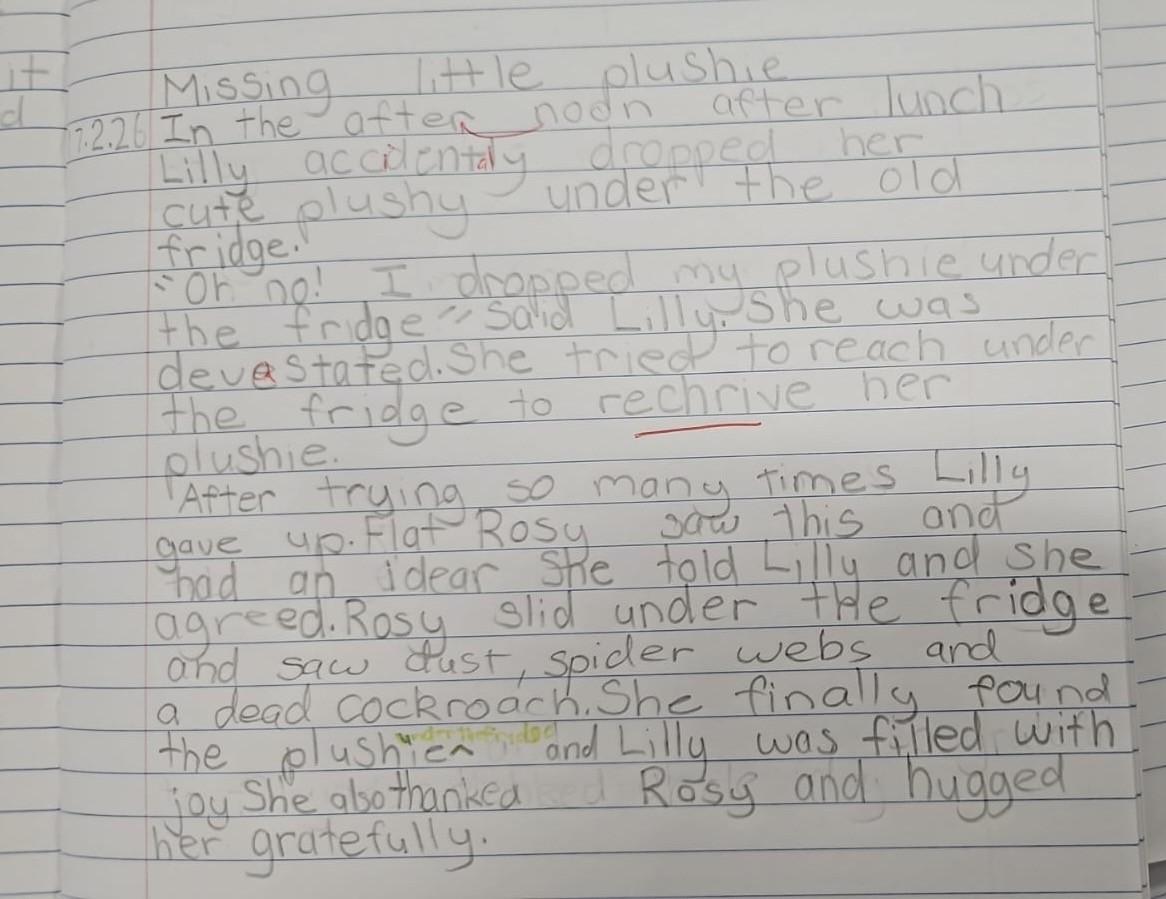 it
d
Missing little plushie
7.2.26 In the after noon after lunch
Lilly accidentaly dropped her
cute plushy under the old
fridge.
"Oh no! I dropped my plushie under
the fridge" said Lilly. She was
devastated. She tried to reach under
the fridge to rechrive her
plushie.
After trying so many times Lilly
gave up. Flat Rosy saw this and
had an idear She told Lilly and she
agreed. Rosy slid under the fridge
and saw dust, spider webs and
a dead cockroach. She finally found
under the fridge
the plushie and Lilly was filled with
joy She also thanked Rosy and hugged
her gratefully.